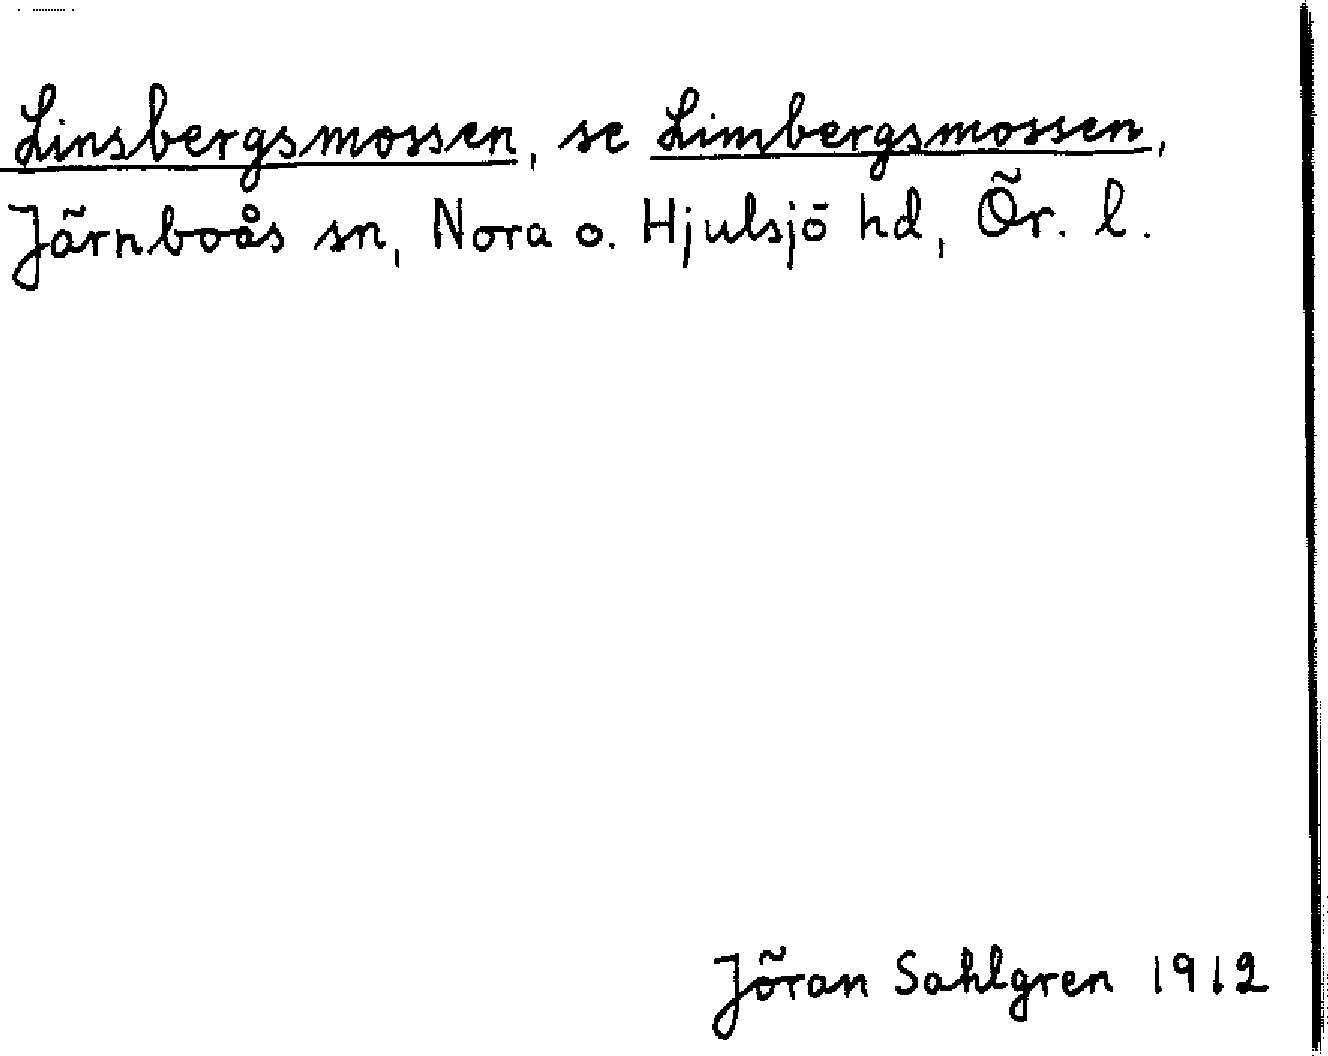 Linsbergsmossen, se Limbergsmossen,
Järnboås sn, Nora o. Hjulsjö hd, Ör. l.
Jöran Sahlgren 1912